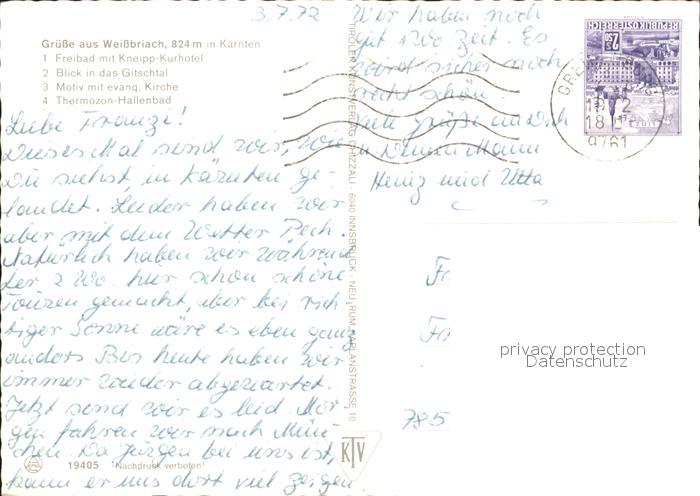 3.7.72
Grüße aus Weißbriach, 824 m in Kärnten
1 Freibad mit Kneipp-Kurhotel
2 Blick in das Gitschtal
3 Motiv mit evang. Kirche
4 Thermozon-Hallenbad
Liebe Franzi!
Dieses Mal sind wir, wie
Du siehst, in Kärnten ge-
landet. Leider haben wir
aber mit dem Wetter Pech.
Natürlich haben wir während
der 2 Wo. hier schon schöne
Touren gemacht, aber bei rich
tiger Sonne wäre es eben ganz
anders Bis heute haben wir
immer wieder abgewartet.
Jetzt sind wir es leid. Mor
gen fahren wir nach Mün
chen. Da Jürgen bei uns ist,
kann er uns dort viel zeigen.
Wir haben noch
gut 1 Wo Zeit. Es
wird sicher noch
recht schön.
Grüße an Dich
u Deinen Mann
Heinz und Utta
TIROLER KUNSTVERLAG CHIZZALI · 6040 INNSBRUCK - NEU-RUM, KAPLANSTRASSE 10
REPUBLIK ÖSTERREICH
2.50
18
9761
Fr
Fr
785
privacy protection
Datenschutz
KTV
19405 Nachdruck verboten!